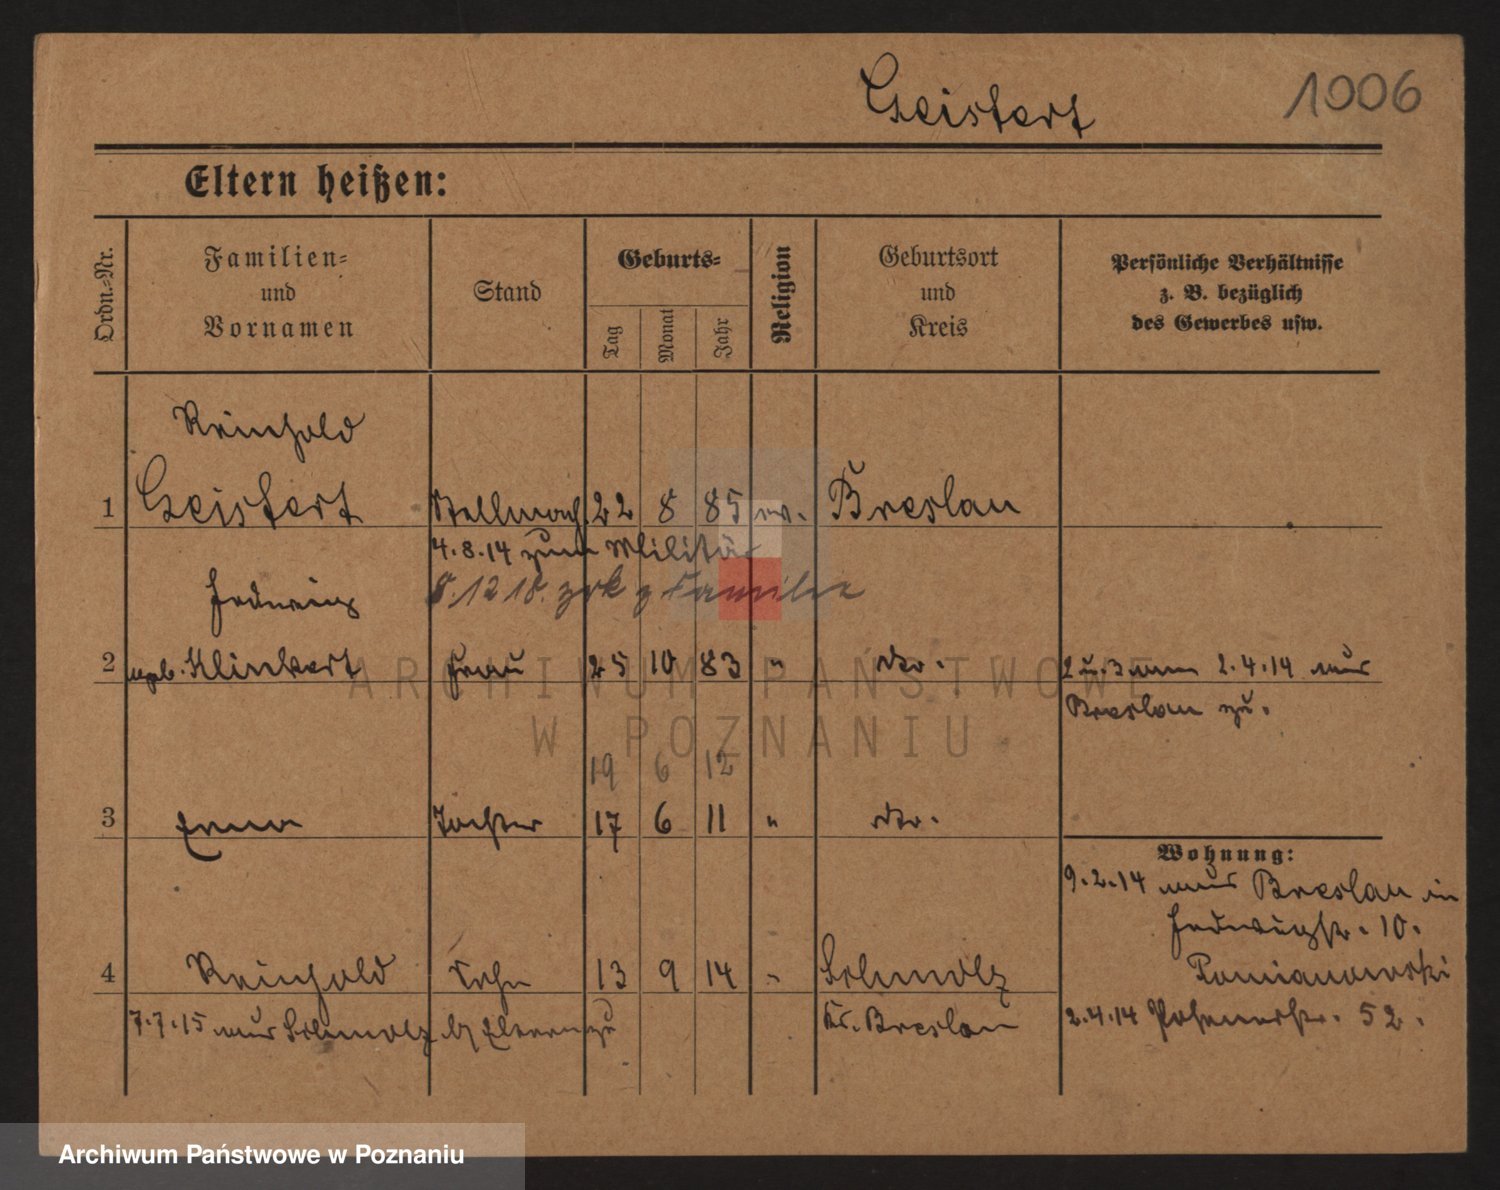 Geistert
1006
Eltern heißen:
Ordn.=Nr.
Familien=
und
Vornamen
Stand
Geburts=
Tag
Monat
Jahr
Religion
Geburtsort
und
Kreis
Persönliche Verhältnisse
z. B. bezüglich
des Gewerbes usw.
Reinhold
1 Geistert Stellmach. 22 8 85 ev. Breslau
4.8.14 zum Militär
8.12.18. zrk z Familie
Hedwig
2 geb. Klinkert Frau 25 10 83 " dto. 2 u. 3 am 2.4.14 aus
Breslau zu.
19 6 12
3 Erna Tochter 17 6 11 " dto.
Wohnung:
9.2.14 aus Breslau in
Hedwigstr. 10.
Pomianowski
4 Reinhold Sohn 13 9 14 " Schmolz
7.7.15 aus Schmolz b/ Eltern zu Kr. Breslau 2.4.14 Posenerstr. 52.
ARCHIWUM PAŃSTWOWE
W POZNANIU
Archiwum Państwowe w Poznaniu